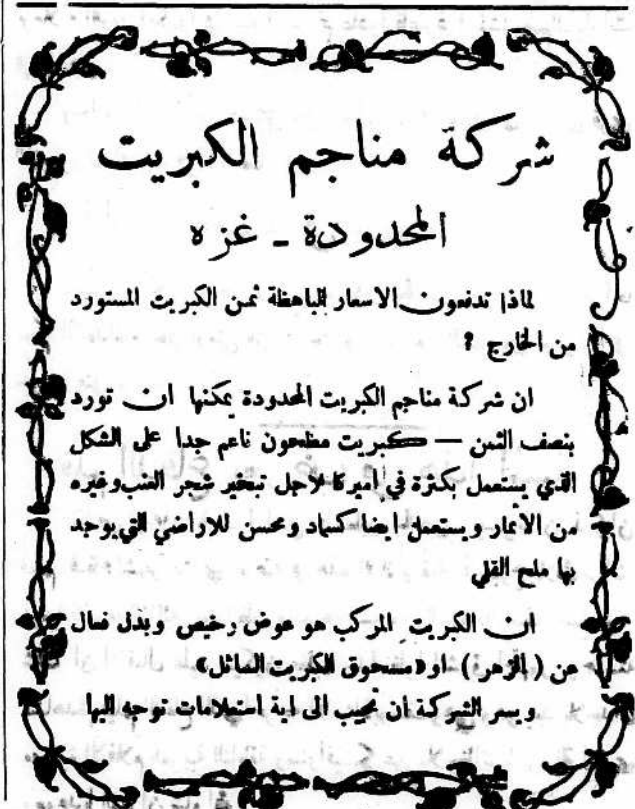 شركة مناجم الكبريت
المحدودة - غزه
لماذا تدفعون الاسعار الباهظة ثمن الكبريت المستورد
من الخارج ؟
ان شركة مناجم الكبريت المحدودة يمكنها ان تورد
بنصف الثمن — كبريت مطحون ناعم جدا على الشكل
الذي يستعمل بكثرة في اميركا لاجل تبخير شجر العنب وغيره
من الاثمار ويستعمل ايضا كسماد ومحسن للاراضي التي يوجد
بها ملح القلي
ان الكبريت المركب هو عوض رخيص وبدل فعال
عن ( الزهر ) او «مسحوق الكبريت السائل»
ويسر الشركة ان تجيب الى اية استعلامات توجه اليها